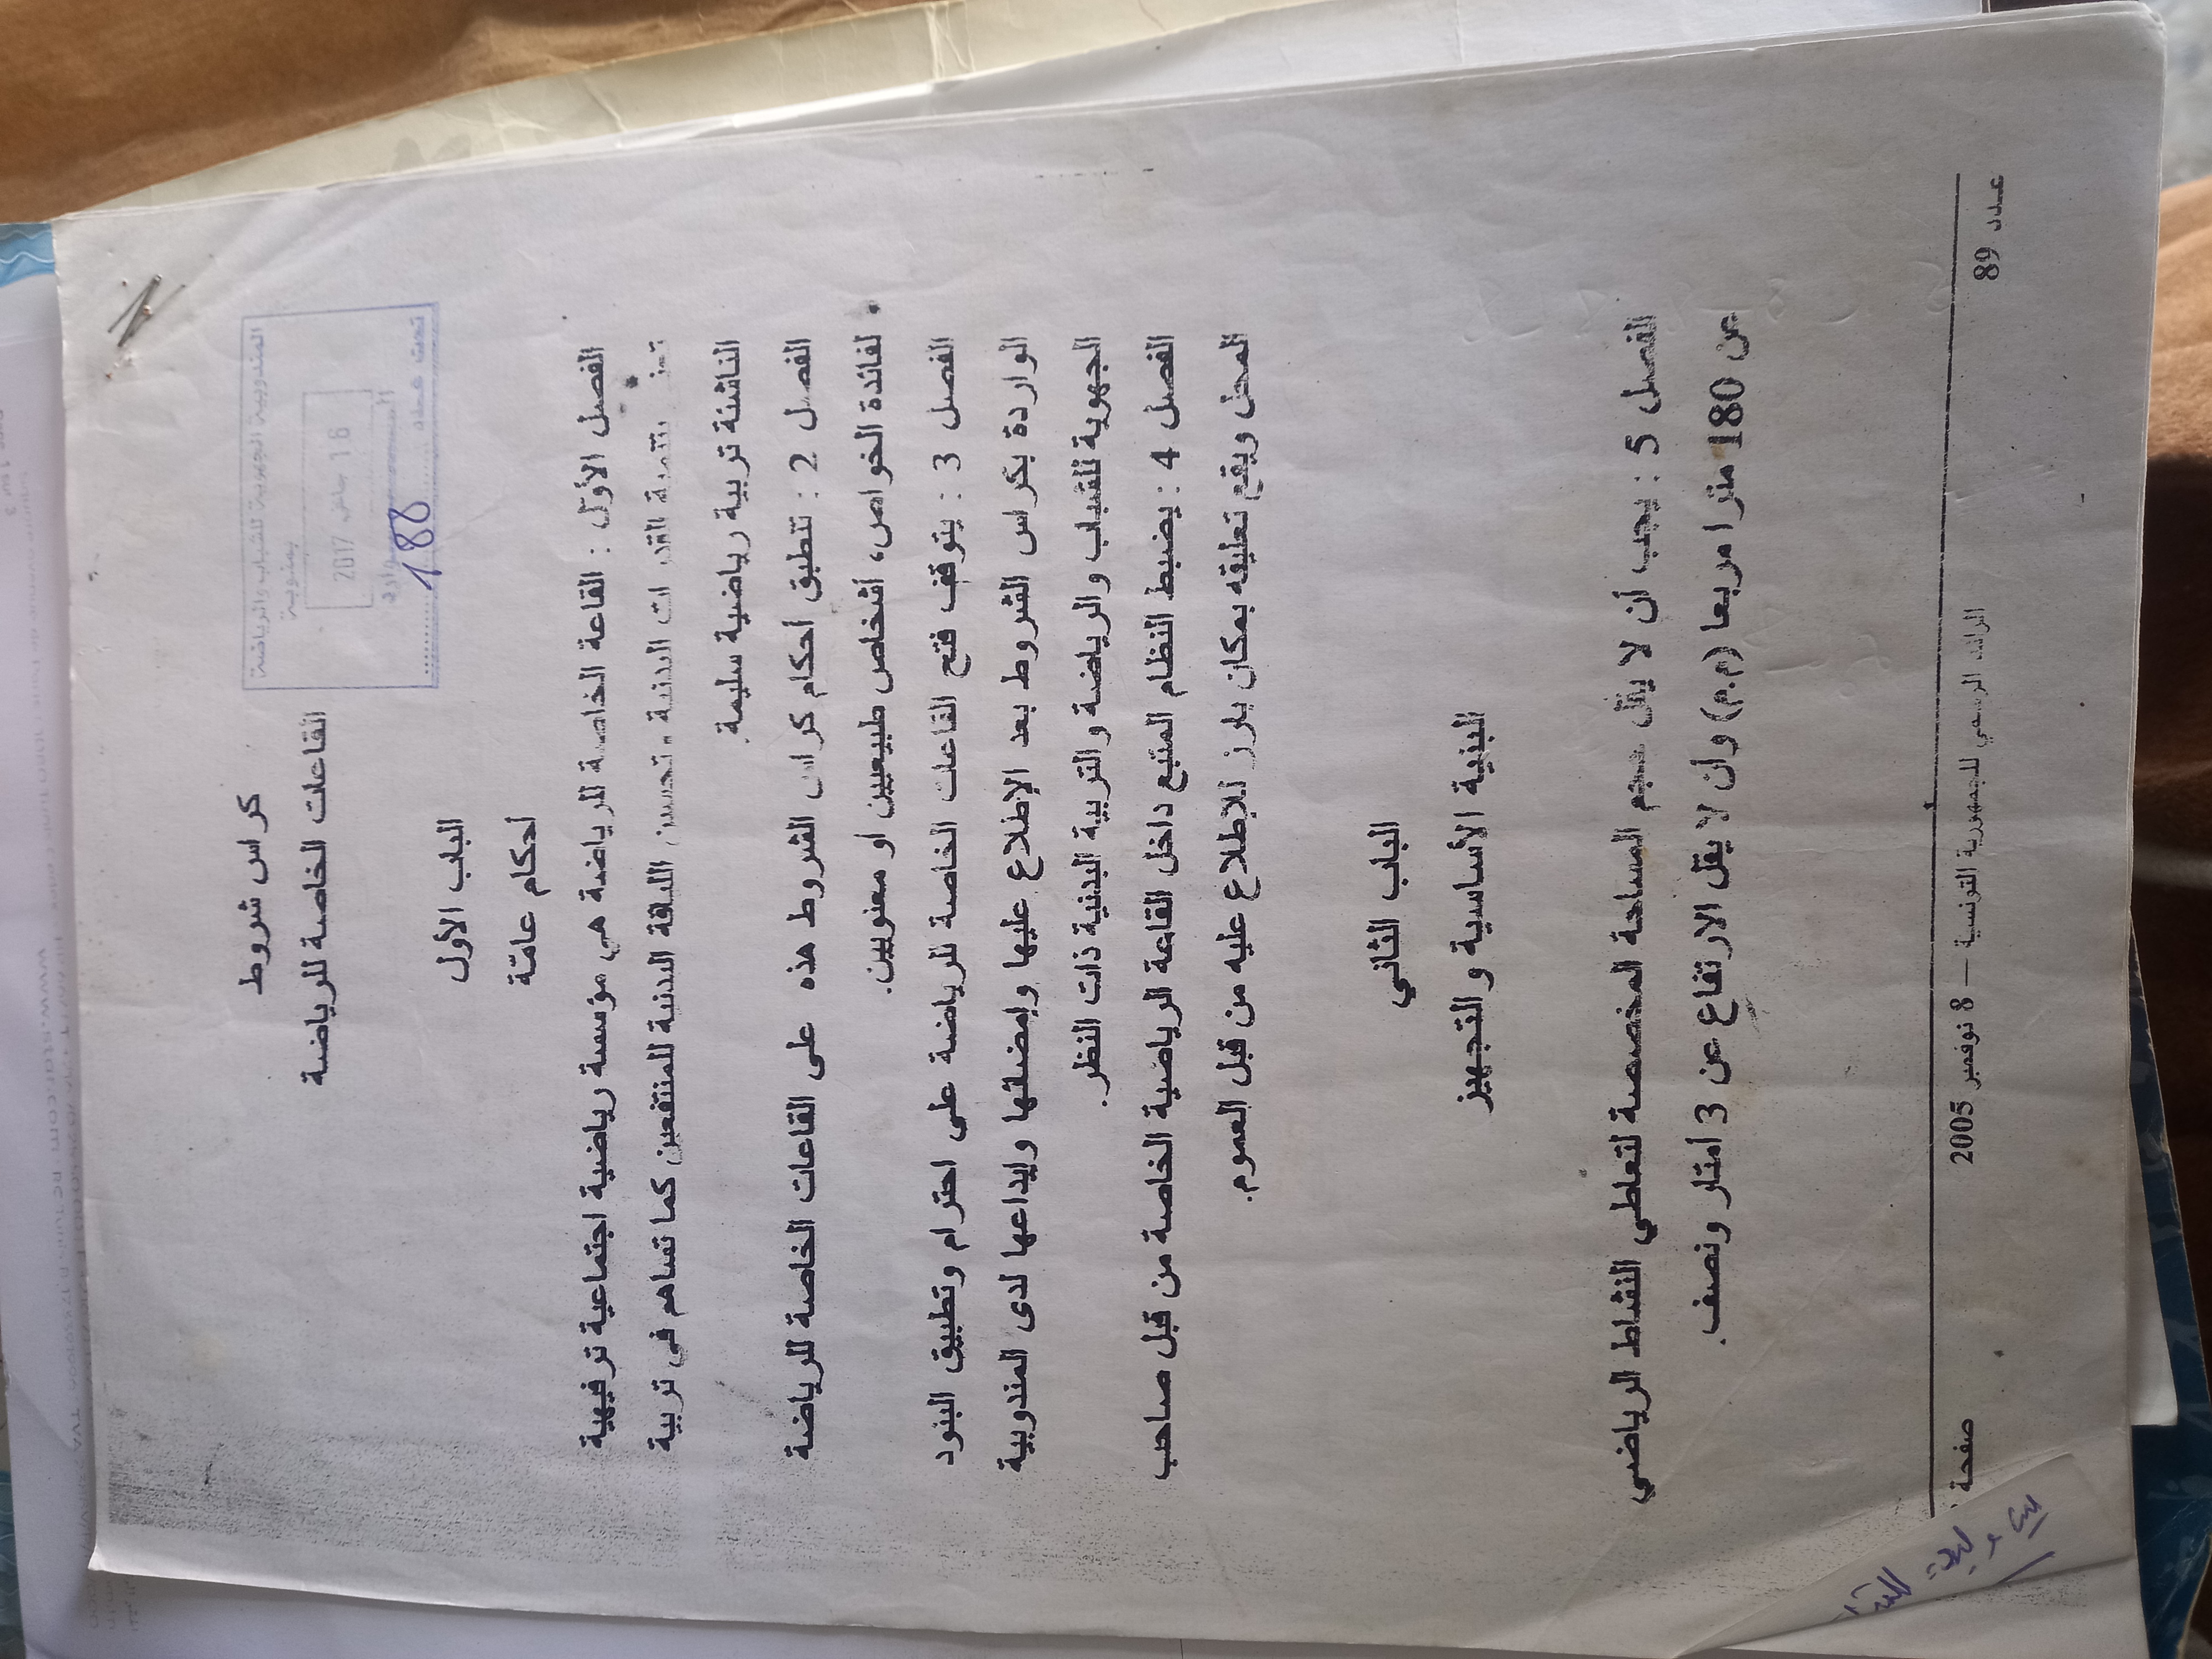 المندوبية الجهوية للشباب والرياضة
بمنوبة
16 جانفي 2017
الـمـــواردة
تحت عـــدد
188
كراس شروط
القاعات الخاصة للرياضة
الباب الأول
أحكام عامة
الفصل الأول : القاعة الخاصة للرياضة هي مؤسسة رياضية اجتماعية ترفيهية
بتنمية القدرات البدنية وتحسين اللياقة البدنية للمنتفعين كما تساهم في تربية
الناشئة تربية رياضية سليمة.
الفصل 2 : تنطبق أحكام كراس الشروط هذه على القاعات الخاصة للرياضة
لفائدة الخواص، أشخاص طبيعيين أو معنويين.
الفصل 3 : يتوقف فتح القاعات الخاصة للرياضة على احترام وتطبيق البنود
الواردة بكراس الشروط بعد الإطلاع عليها وإمضائها وإيداعها لدى المندوبية
الجهوية للشباب والرياضة والتربية البدنية ذات النظر.
الفصل 4 : يضبط النظام المتبع داخل القاعة الرياضية الخاصة من قبل صاحب
المحل ويقع تعليقه بمكان بارز للإطلاع عليه من قبل العموم.
الباب الثاني
البنية الأساسية والتجهيز
الفصل 5 : يجب أن لا يقل حجم المساحة المخصصة لتعاطي النشاط الرياضي
عن 180 مترا مربعا (م.م) وأن لا يقل الارتفاع عن 3 أمتار ونصف.
عدد 89
الرائد الرسمي للجمهورية التونسية – 8 نوفمبر 2005
صفحة